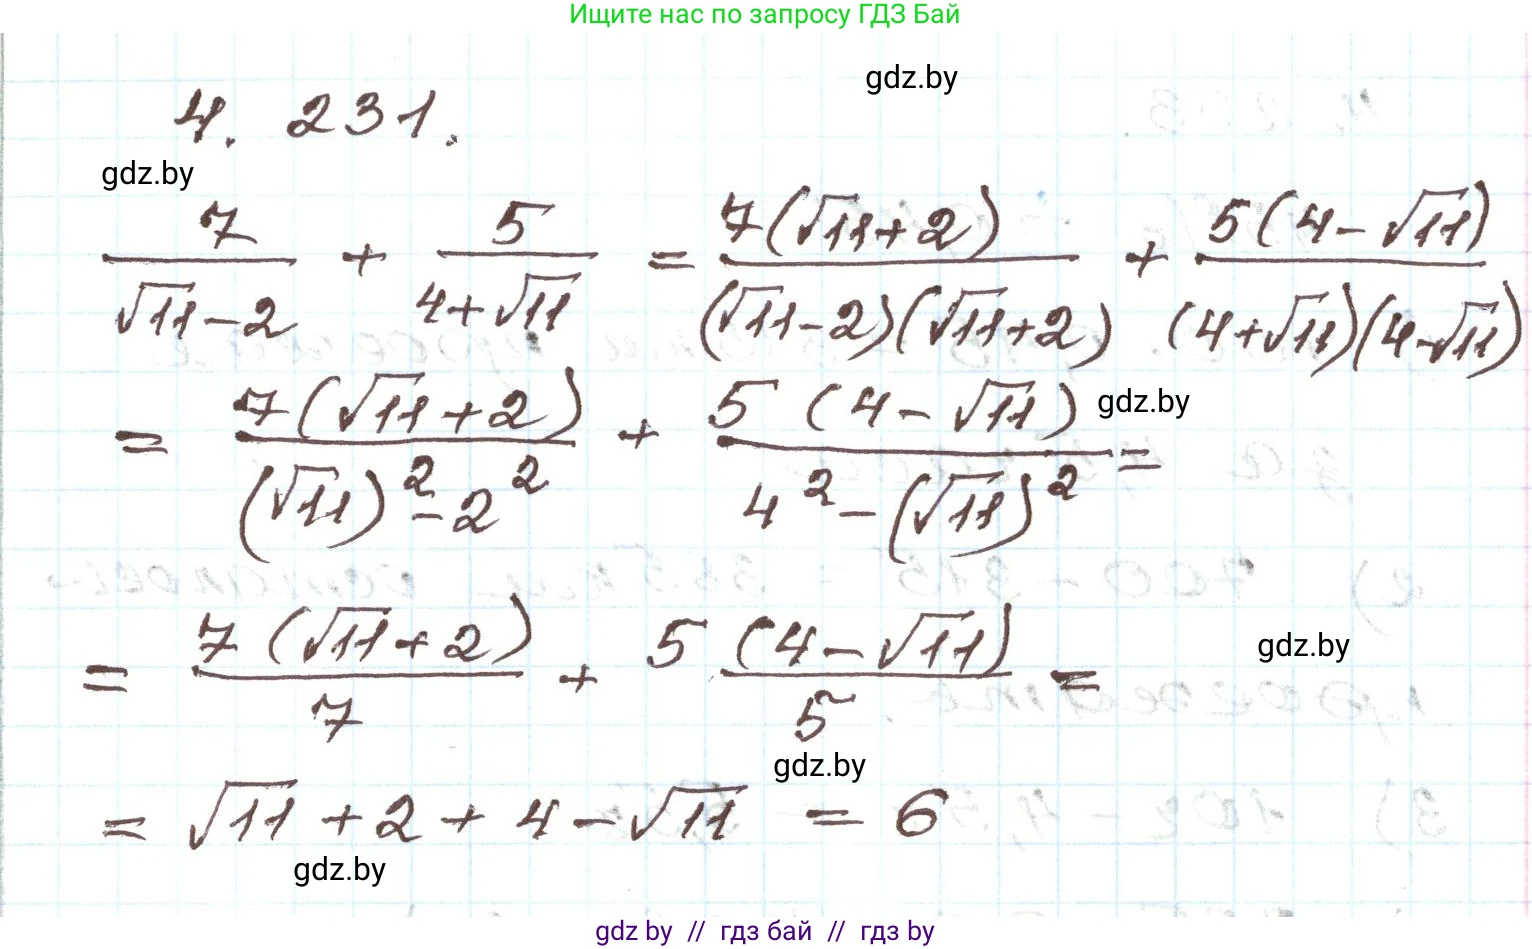 Ищите нас по запросу ГДЗ Бай
gdz.by
4. 231.
gdz.by
7/(√11-2) + 5/(4+√11) = 7(√11+2)/((√11-2)(√11+2)) + 5(4-√11)/((4+√11)(4-√11))
= 7(√11+2)/((√11)²-2²) + 5(4-√11)/(4²-(√11)²) =
gdz.by
= 7(√11+2)/7 + 5 (4-√11)/5 =
gdz.by
gdz.by
= √11 + 2 + 4 - √11 = 6
gdz.by
gdz by // гдз бай // гдз by